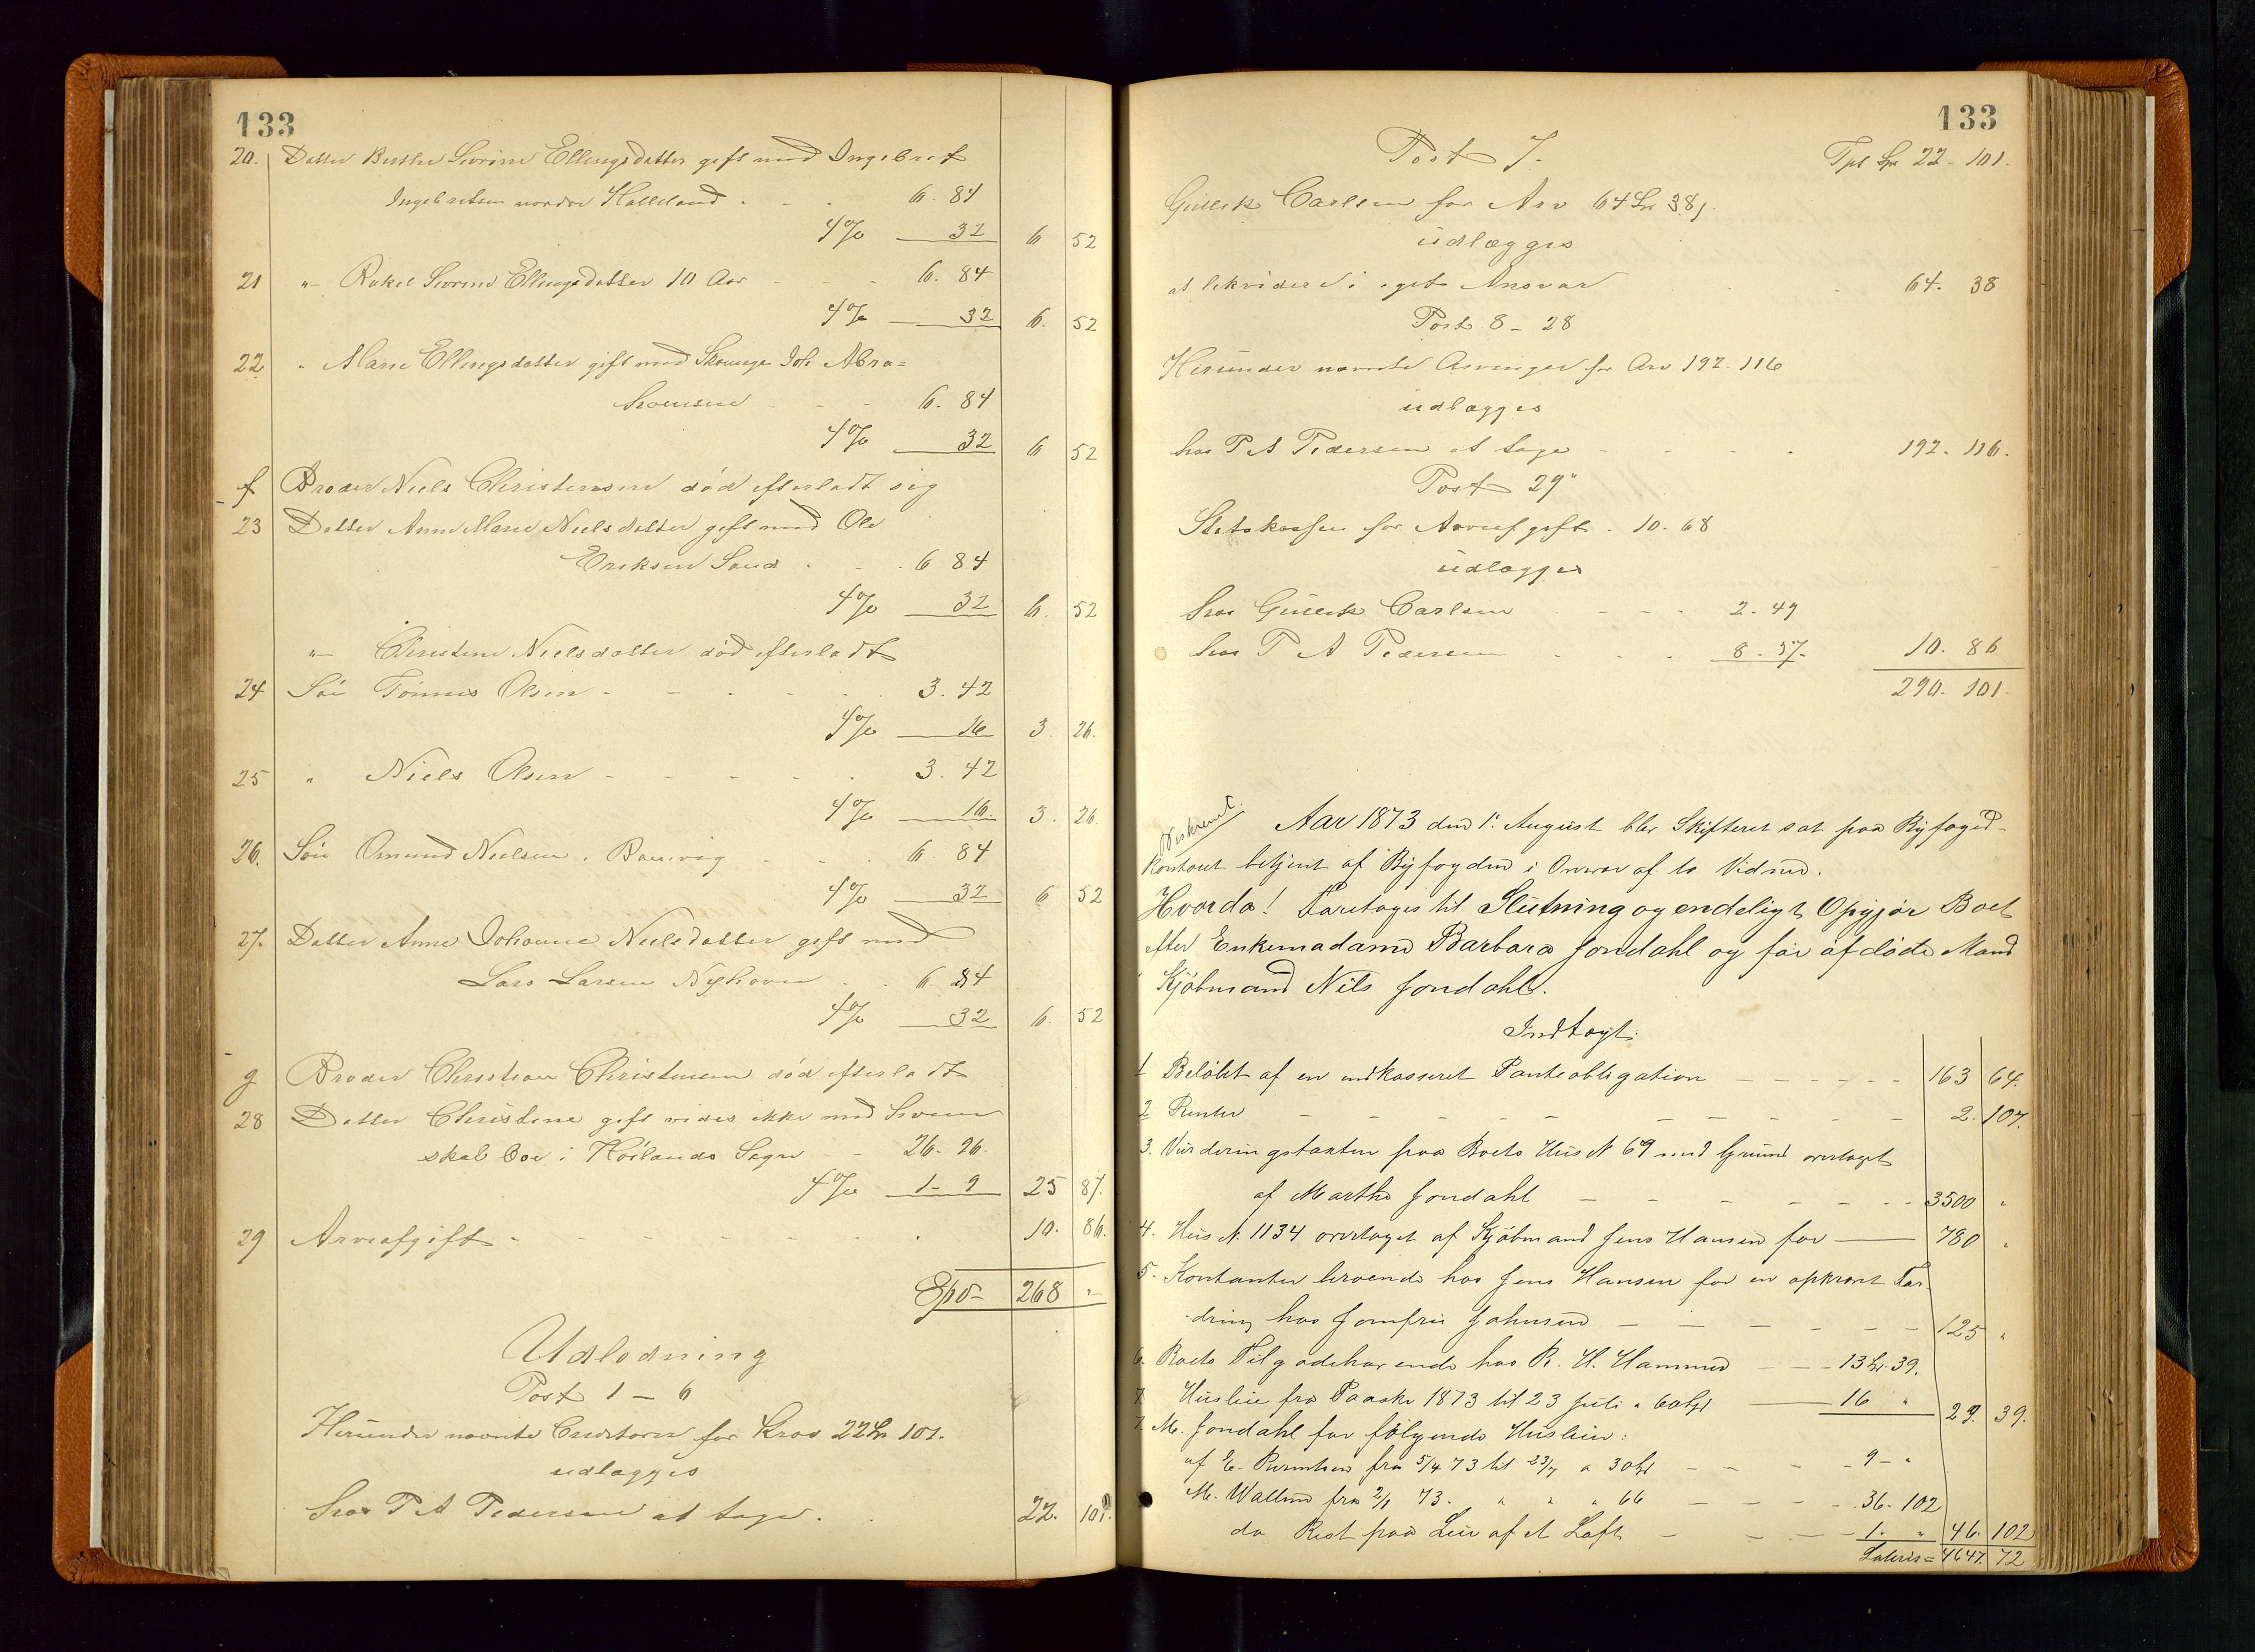 133
20. Datter Berthe Serine Ellingsdatter gift med Ingebret
Ingebretsen nordre Halleland . - . 6. 84
4% 32 6 52
21 " Rakel Serine Ellingsdatter 10 Aar - - - 6. 84
4% 32 6. 52
22 " Marie Ellingsdatter gift med Joh Abra=
hamsen - - - 6. 84
4% 32 6 52
f Broder Niels Christensen død efterladt sig
23 Datter Anne Marie Nielsdatter gift med Ole
Eriksen Sand . - . 6 84
4% 32 6. 52
" Christine Nielsdatter død efterladt
24 Søn Tønnes Olsen - - - - . 3. 42
4% 16 3. 26.
25 " Niels Olsen - - - - . 3. 42
4% 16. 3. 26.
26. Søn Omund Nielsen i - - . 6. 84
4% 32 6 52
27. Datter Anne Johanne Nielsdatter gift med
Lars Larsen Nyhavn . . 6. 84
4% 32 6. 52
g Broder Christian Christensen død efterladt
28 Datter Christine gift vides ikke med hvem
skal boe i Høilands Sogn - - 26. 96.
4% 1 - 9 25 87.
29 Arveafgift - - - - - - . 10. 86.
Spd 268 "
Udlodning
Post 1 - 6
Herunder nævnte Creditorer for Krav 22 Sp 101.
udlægges
hos P A Pedersen at tage . . 22. 101.
133
Post 7. Tpt Sp 22 - 101.
Gullek Carlsen for Arv 64 Sp 38 s.
udlægges
at likvidere i eget Ansvar . . 64. 38
Post 8 - 28
Herunder nævnte Arvinger for Arv 192. 116
udlægges
hos P A Pedersen at tage - - - . 192. 116.
Post 29
Statskassen for Arveafgift . 10. 68
udlægges
hos Gullek Carlsen - - - . 2. 49
hos P A Pedersen - . . . 8. 37. 10. 86
290. 101.
Beskrevet.
Aar 1873 den 1. August blev Skifteret sat paa Byfoged-
kontoret betjent af Byfogden i Overvær af to Vidner.
Hvorda! Foretoges til Slutning og endeligt Opgjør Boet
efter Enkemadame Barbara Jondahl og før afdøde Mand
Kjøbmand Nils Jondahl.
Indtægt:
1 Beløbet af en indkasseret Panteobligation - - - - - - 163 64.
2 Renter - - - - - - - - - - 2. 107.
3. Vurderingstaxten paa Boets Hus N 69 med Grund overtaget
af Marthe Jondahl - - - - - - - 3500 "
4. Hus N. 1134 overtaget af Kjøbmand Jens Hansen for - 780 "
5. Kontanter beroende hos Jens Hansen for en opkrævet For
dring hos Jomfru Johnsen - - - - - - 125 "
6. Boets Tilgodehavende hos R. H. Hammer - - - 13 Sp. 39.
7. Husleie fra Paaske 1873 til 23 Juli a 60 Sp - 16 " 29. 39.
7. M. Jondahl for følgende Husleier:
af E. Berentsen fra 5/4 73 til 23/7 a 30 Sp - - - - 9 - "
M. Wallem fra 2/1 73. " " " 66 - - - - 36 - 102
do. Rest paa Leie af et Loft - - . - - 1. " 46. 102
Lateris = 4647. 72